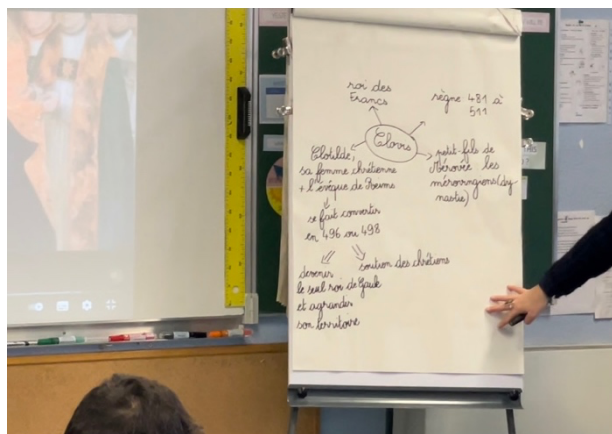 roi des
Francs
règne 481 à
511
Clovis
Clotilde,
sa femme chrétienne
+ l'évêque de Reims
petit-fils de
Mérovée les
mérovingiens (dy
nastie)
se fait convertir
en 496 ou 498
devenir
le seul roi de Gaule
et agrandir
son territoire
soutien des chrétiens